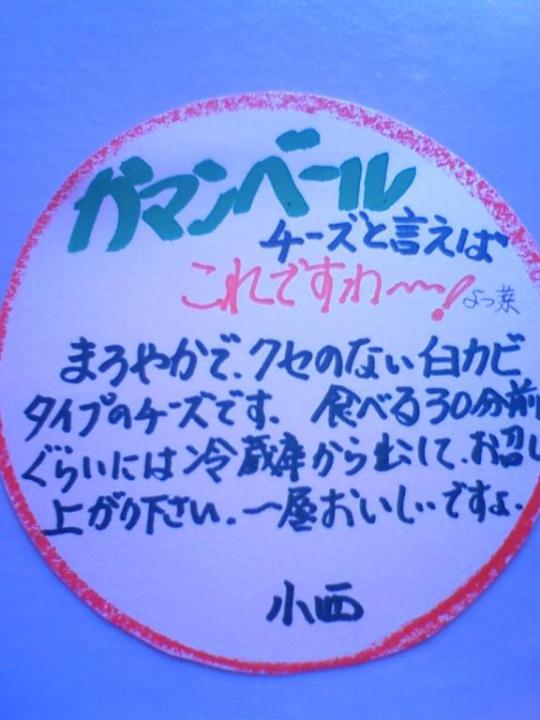 ガマンベール
チーズと言えば
これですわ〜!
よつ葉
まろやかで、クセのない白カビ
タイプのチーズです。食べる30分前
ぐらいには冷蔵庫から出して、お召し
上がり下さい。一層おいしいですよ。
小西